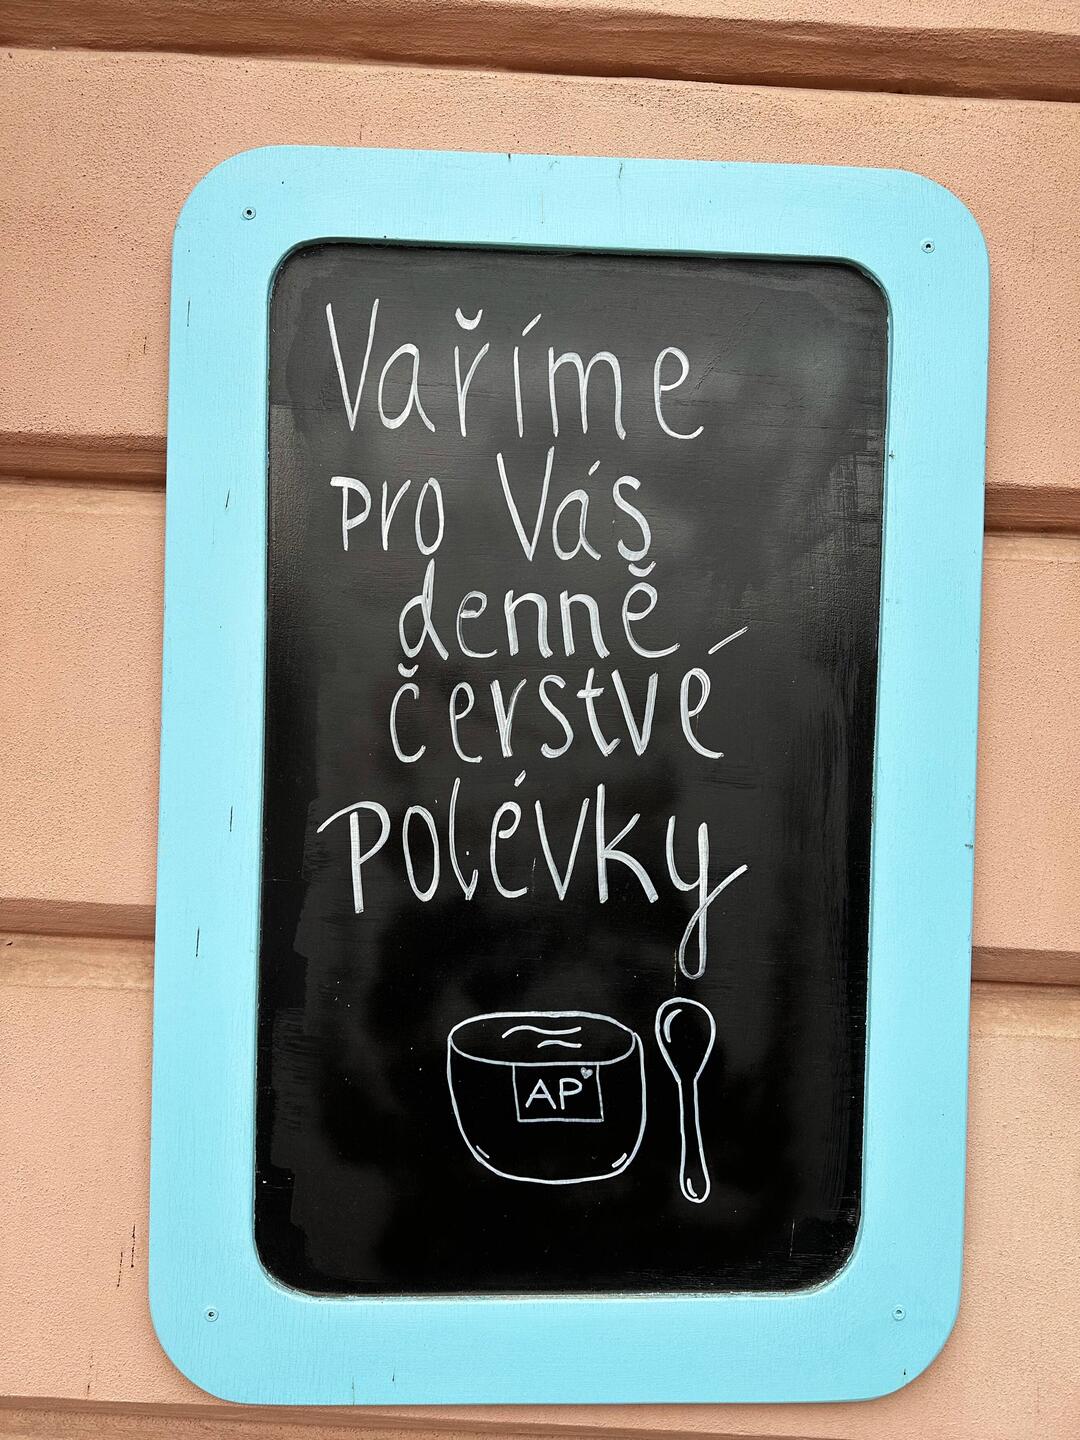 Vaříme
pro Vás
denně
čerstvé
polévky
AP